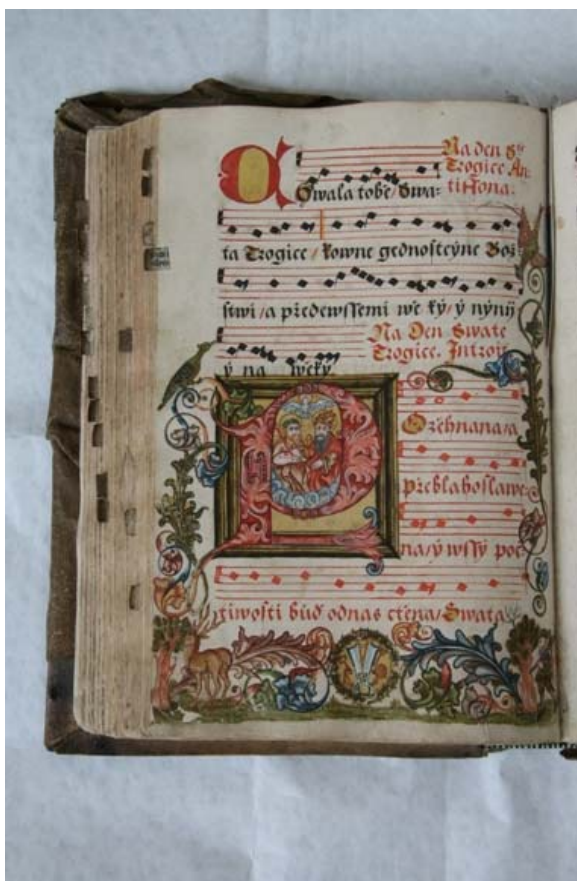 Na den S^te
Trogice An:
tiffona.
CHwala tobě/ Swa:
ta Trogice / Rowne gednosteyne Bož:
stwi /a předewssemi wě ký/ ý nýnij
Na Den Swate
Trogice. Introit
ý na wěký
POžehnana/a
přeblahoslawe:
na/ý wssý poč
tiwosti bud odnas ctěna/ Swata